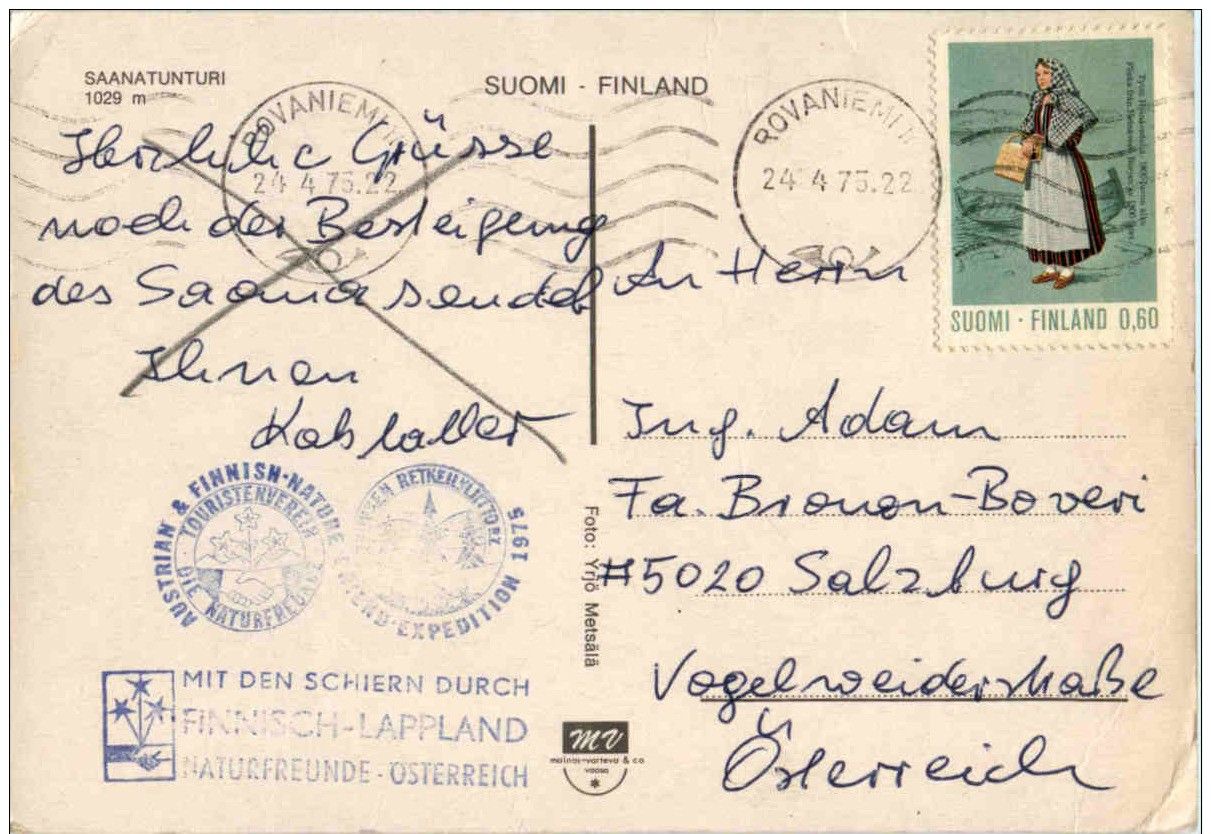 SAANATUNTURI
1029 m
SUOMI - FINLAND
ROVANIEMI
24 4 75.22
ROVANIEMI
24 4 75.22
SUOMI · FINLAND 0,60
Herzliche Grüsse
nach der Besteigung
des Saana sendet
Ihnen
An Herrn
Ing. Adam
Fa. Brown-Boveri
#5020 Salzburg
Vogelweiderstraße
Österreich
AUSTRIAN & FINNISH-NATURE FRIEND-EXPEDITION 1975
TOURISTENVEREIN
DIE NATURFREUNDE
MIT DEN SCHIERN DURCH
FINNISCH-LAPPLAND
NATURFREUNDE - ÖSTERREICH
Foto: Yrjö Metsälä
MV
mainos-varteva & co
vaasa